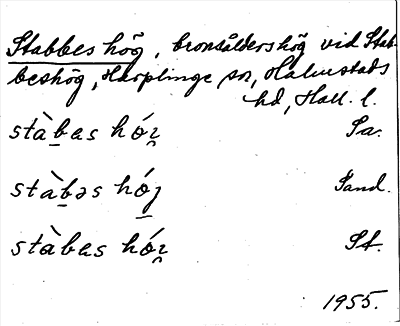 Stabbes hög, bronsåldershög vid Stab-
beshög, Harplinge sn, Halmstads
hd, Hall. l.
stàb̲as hóɀ̯ Sa.
stàb̲əs hó̲ȷ Sand.
stàbas hóɀ̯ St.
1955.